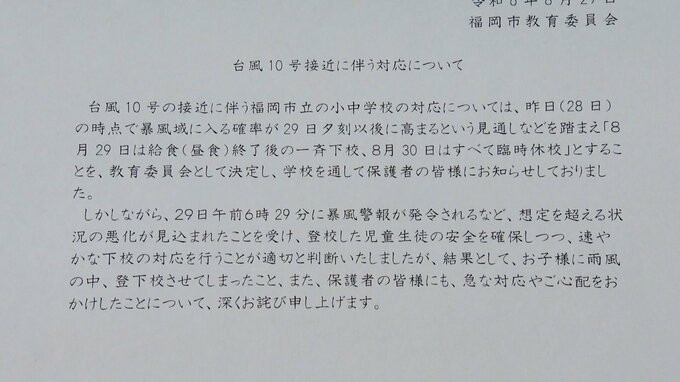 令和6年8月29日
福岡市教育委員会
台風10号接近に伴う対応について
台風10号の接近に伴う福岡市立の小中学校の対応については、昨日(28日)
の時点で暴風域に入る確率が29日夕刻以後に高まるという見通しなどを踏まえ「8
月29日は給食(昼食)終了後の一斉下校、8月30日はすべて臨時休校」とするこ
とを、教育委員会として決定し、学校を通して保護者の皆様にお知らせしておりまし
た。
しかしながら、29日午前6時29分に暴風警報が発令されるなど、想定を超える状
況の悪化が見込まれたことを受け、登校した児童生徒の安全を確保しつつ、速や
かな下校の対応を行うことが適切と判断いたしましたが、結果として、お子様に雨風
の中、登下校させてしまったこと、また、保護者の皆様にも、急な対応やご心配をお
かけしたことについて、深くお詫び申し上げます。